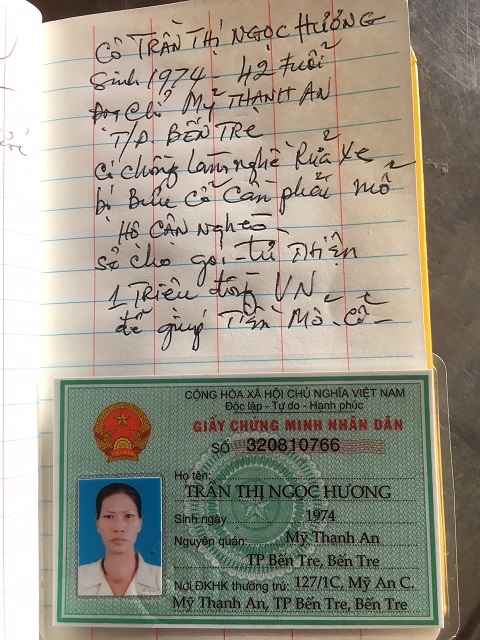 CÔ TRẦN THỊ NGỌC HƯƠNG
Sinh 1974 - 42 tuổi
Địa chỉ MỸ THẠNH AN
T/P. BẾN TRE
có chồng làm nghề Rửa xe
bị Bứu cổ cần phải mổ
HỘ CẬN NGHÈO -
sẽ cho gởi - từ Thiện
1 TRIỆU đồng VN
để giúp Tiền Mổ - Cổ -
CỘNG HÒA XÃ HỘI CHỦ NGHĨA VIỆT NAM
Độc lập - Tự do - Hạnh phúc
GIẤY CHỨNG MINH NHÂN DÂN
SỐ 320810766
Họ tên:
TRẦN THỊ NGỌC HƯƠNG
Sinh ngày 1974
Nguyên quán: Mỹ Thạnh An
TP Bến Tre, Bến Tre
Nơi ĐKHK thường trú: 127/1C, Mỹ An C.
Mỹ Thạnh An, TP Bến Tre, Bến Tre